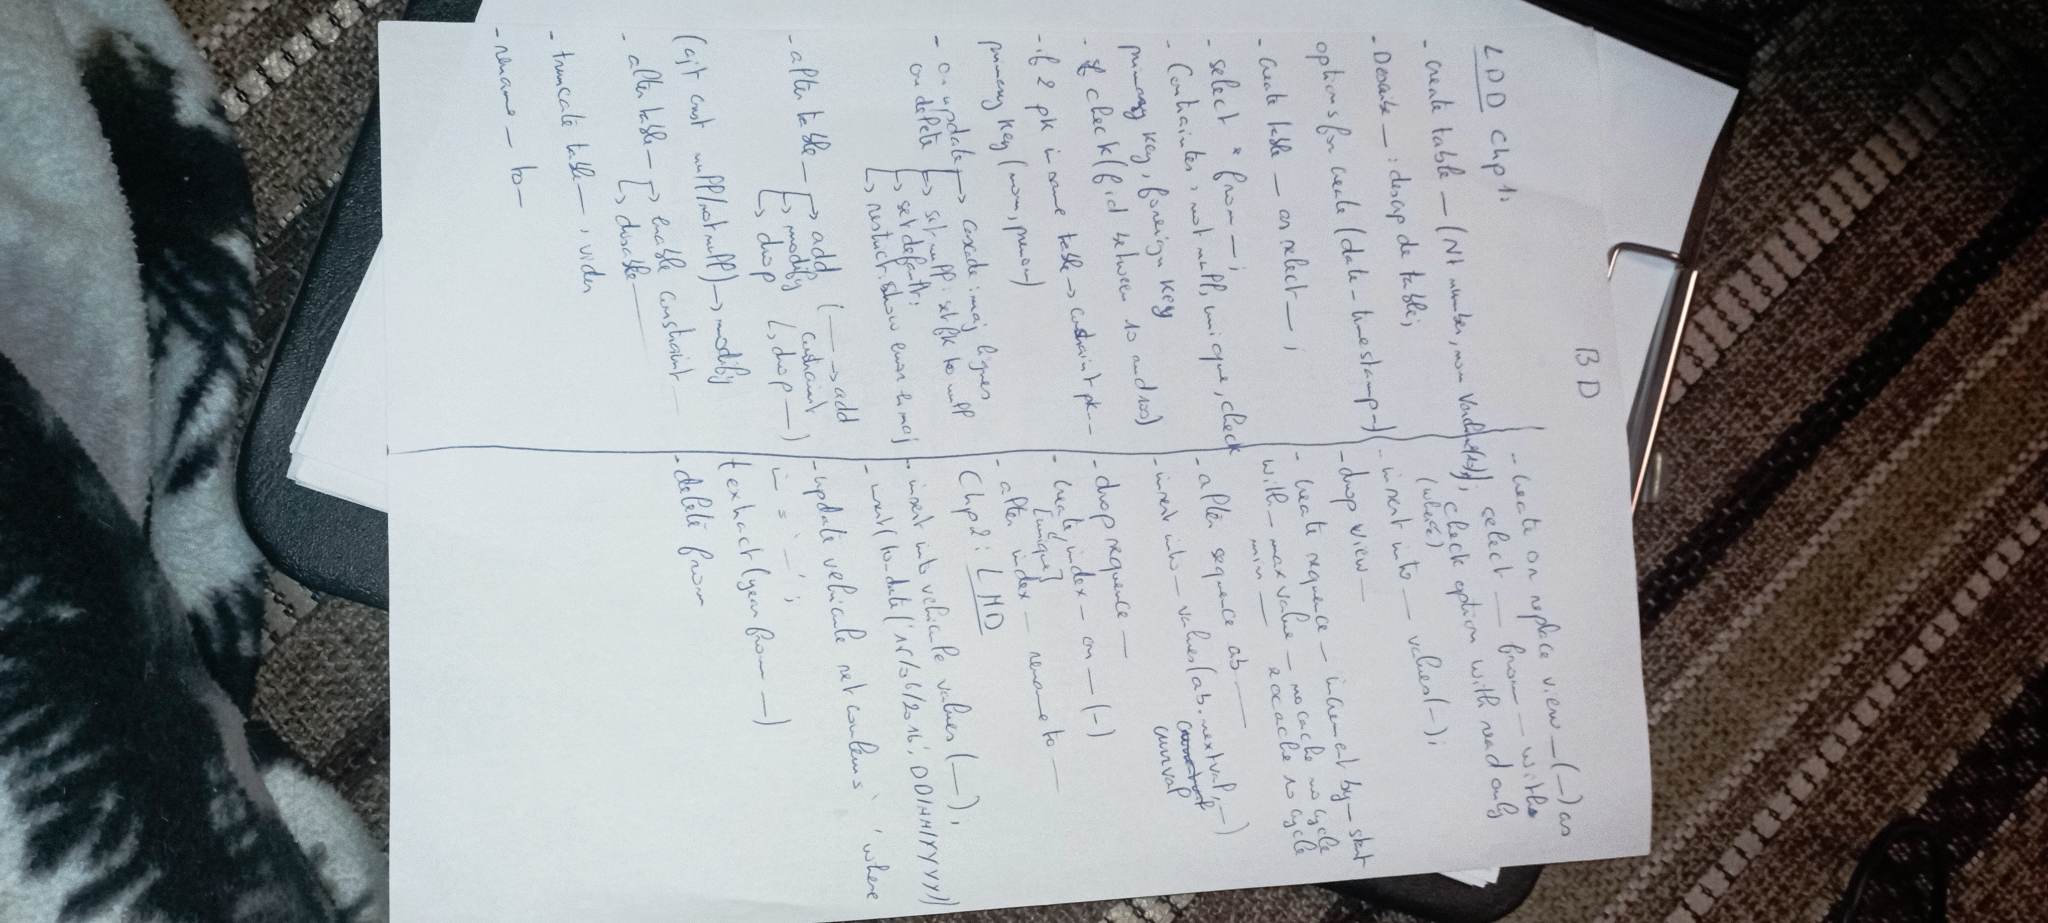 BD
LDD Chp 1:
- create table _ (N1 number, nom Varchar2(10));
- Describe _ : descrip de table;
options for create (date - timestamp -)
- create table _ as select _ ;
- select * from _ ;
- Contraintes : not null, unique, check
primary key, foreign key
- check (fid between 10 and 100)
- if 2 pk in same table -> constraint pk --
primary key (nom, prenom)
- on update -> cascade : maj lignes
on delete -> set null : set fk to null
-> set default :
-> restrict : show error maj
- alter table _ -> add ( _ -> add
-> modify constraint
-> drop -> drop _ )
(ajt const null/not null) -> modify
- alter table _ -> enable constraint
-> disable _
- truncate table _ : vider
- rename _ to _
- create or replace view _ (_) as
select _ from _ with
check option with read only
(where)
- insert into _ values (_);
- drop view _
- create sequence _ increment by _ start
with _ max value _ no cache no cycle
min _ 20 cache 10 cycle
- alter sequence ab _
- insert into _ values (ab.nextval, _)
currval
- drop sequence _
- create index _ on _ (_)
[unique]
- alter index _ rename to _
Chp 2 : LMD
- insert into vehicule values (_),
- insert (to_date('15/06/2016', DD/MM/YYYY))
- update vehicule set couleur = ' ' where
= '_' ;
extract (year from _)
- delete from